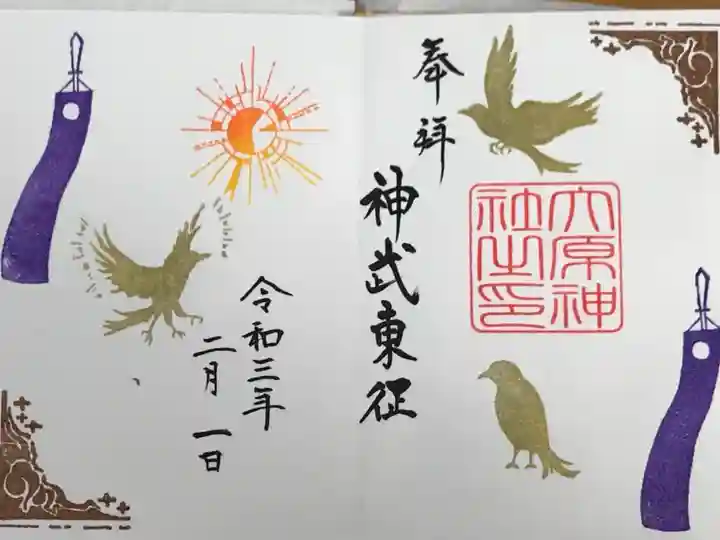 奉拝
神武東征
六原神
社之印
令和三年
二月一日